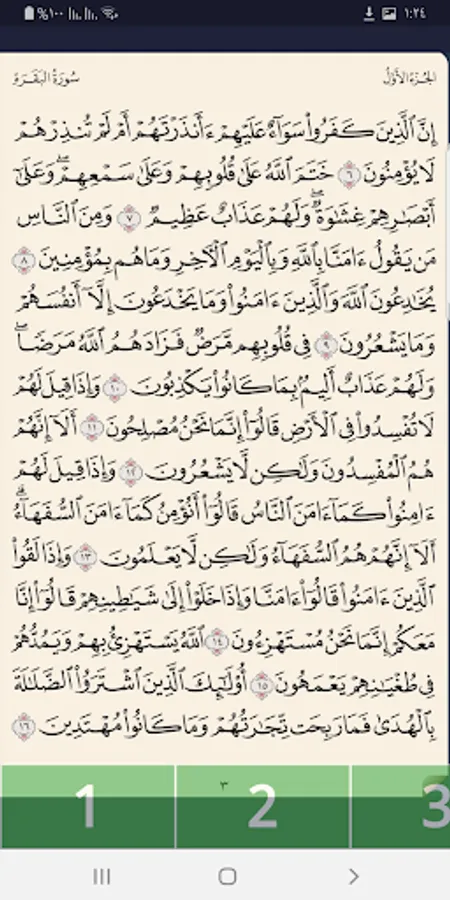 %١٠٠ ١:٢٤
الجزء الأول سورة البقرة
إِنَّ ٱلَّذِينَ كَفَرُوا۟ سَوَآءٌ عَلَيْهِمْ ءَأَنذَرْتَهُمْ أَمْ لَمْ تُنذِرْهُمْ
لَا يُؤْمِنُونَ ٦ خَتَمَ ٱللَّهُ عَلَىٰ قُلُوبِهِمْ وَعَلَىٰ سَمْعِهِمْ ۖ وَعَلَىٰٓ
أَبْصَـٰرِهِمْ غِشَـٰوَةٌ ۖ وَلَهُمْ عَذَابٌ عَظِيمٌ ٧ وَمِنَ ٱلنَّاسِ
مَن يَقُولُ ءَامَنَّا بِٱللَّهِ وَبِٱلْيَوْمِ ٱلْـَٔاخِرِ وَمَا هُم بِمُؤْمِنِينَ ٨
يُخَـٰدِعُونَ ٱللَّهَ وَٱلَّذِينَ ءَامَنُوا۟ وَمَا يَخْدَعُونَ إِلَّآ أَنفُسَهُمْ
وَمَا يَشْعُرُونَ ٩ فِى قُلُوبِهِم مَّرَضٌ فَزَادَهُمُ ٱللَّهُ مَرَضًا ۖ
وَلَهُمْ عَذَابٌ أَلِيمٌۢ بِمَا كَانُوا۟ يَكْذِبُونَ ١٠ وَإِذَا قِيلَ لَهُمْ
لَا تُفْسِدُوا۟ فِى ٱلْأَرْضِ قَالُوٓا۟ إِنَّمَا نَحْنُ مُصْلِحُونَ ١١ أَلَآ إِنَّهُمْ
هُمُ ٱلْمُفْسِدُونَ وَلَـٰكِن لَّا يَشْعُرُونَ ١٢ وَإِذَا قِيلَ لَهُمْ
ءَامِنُوا۟ كَمَآ ءَامَنَ ٱلنَّاسُ قَالُوٓا۟ أَنُؤْمِنُ كَمَآ ءَامَنَ ٱلسُّفَهَآءُ ۗ
أَلَآ إِنَّهُمْ هُمُ ٱلسُّفَهَآءُ وَلَـٰكِن لَّا يَعْلَمُونَ ١٣ وَإِذَا لَقُوا۟
ٱلَّذِينَ ءَامَنُوا۟ قَالُوٓا۟ ءَامَنَّا وَإِذَا خَلَوْا۟ إِلَىٰ شَيَـٰطِينِهِمْ قَالُوٓا۟ إِنَّا
مَعَكُمْ إِنَّمَا نَحْنُ مُسْتَهْزِءُونَ ١٤ ٱللَّهُ يَسْتَهْزِئُ بِهِمْ وَيَمُدُّهُمْ
فِى طُغْيَـٰنِهِمْ يَعْمَهُونَ ١٥ أُو۟لَـٰٓئِكَ ٱلَّذِينَ ٱشْتَرَوُا۟ ٱلضَّلَـٰلَةَ
بِٱلْهُدَىٰ فَمَا رَبِحَت تِّجَـٰرَتُهُمْ وَمَا كَانُوا۟ مُهْتَدِينَ ١٦
٣
1 2 3